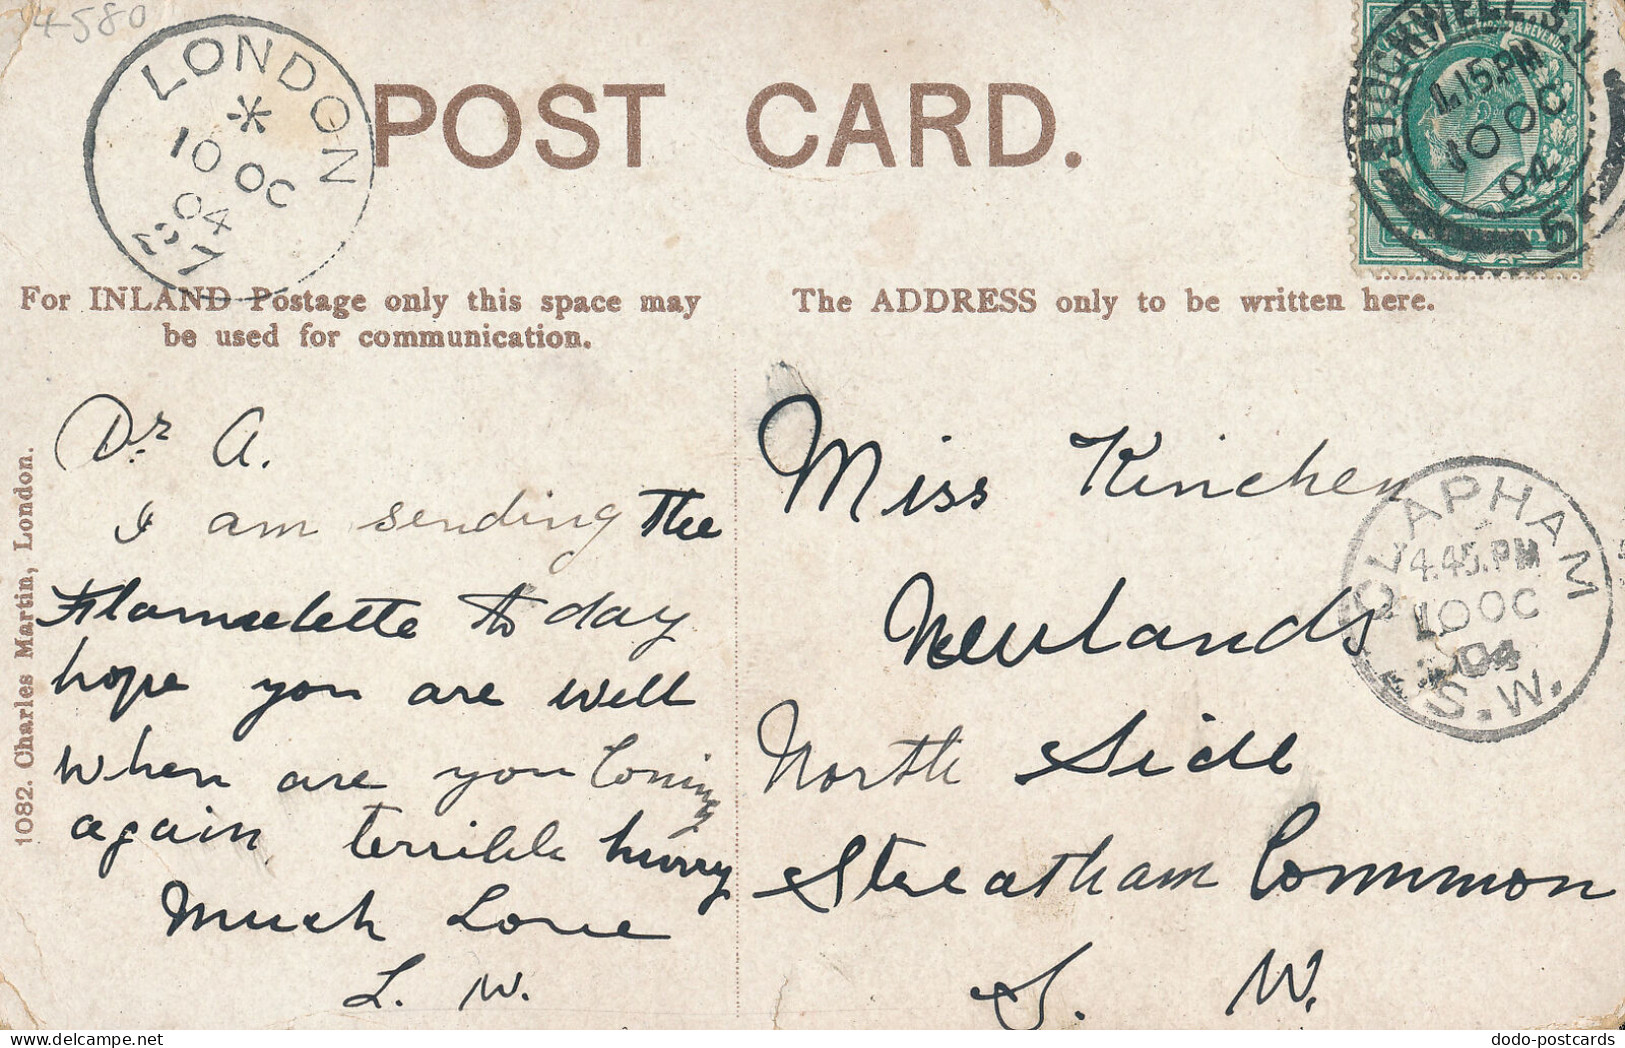 4580
LONDON
10 OC
04
27
POST CARD.
STOCKWELL.S.
1.15PM
10 OC
04
5
& REVENUE
For INLAND Postage only this space may
be used for communication.
The ADDRESS only to be written here.
Dr. A.
I am sending the
to day
hope you are well
when are you Coming
again terrible hurry
Much Love
L. W.
Miss Kinchen
Newlands
North Side
Streatham Common
S. W.
CLAPHAM
4.45.PM
10 OC
04
S.W.
1082. Charles Martin, London.
dodo-postcards